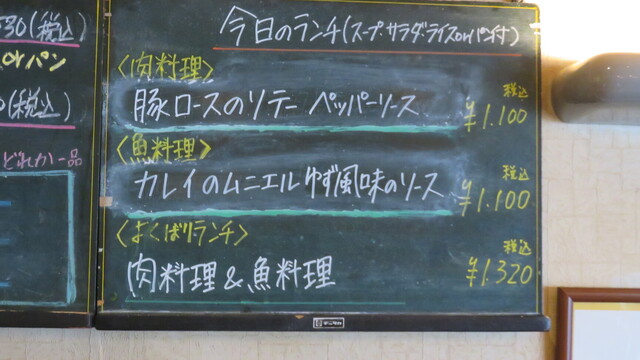 530(税込)
orパン
(税込)
どれか一品
今日のランチ(スープ・サラダ・ライスorパン付)
<肉料理>
豚ロースのソテー ペッパーソース
税込
¥1.100
<魚料理>
カレイのムニエル ゆず風味のソース
税込
¥1.100
<よくばりランチ>
肉料理&魚料理
税込
¥1.320